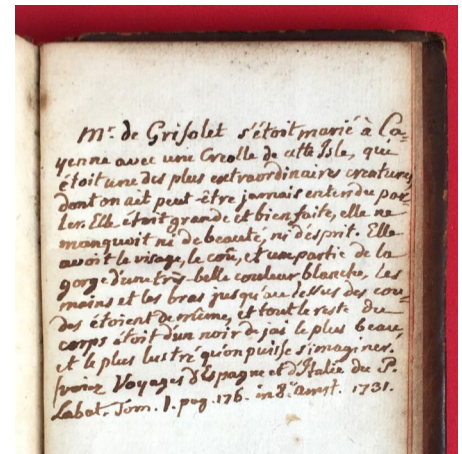 Mr. de Grisolet s'étoit marié à Ca=
yenne avec une Creolle de cette Isle, qui
étoit une des plus extraordinaires creatures,
dont on ait peut-être jamais entendu par=
ler. Elle étoit grande et bien faite, elle ne
manquoit ni de beauté, ni d'esprit. Elle
avoit le visage, le coû, et une partie de la
gorge d'une très-belle couleur blanche, Les
mains et les bras jusqu'au dessus des cou=
des étoient de même, et tout le reste du
corps étoit d'un noir de jai le plus beau,
et le plus lustré qu'on puisse s'imaginer.
(voiez Voyages d'Espagne et d'Italie du P.
Labat. Tom. 1. pag. 176. in 8.° amst. 1731.